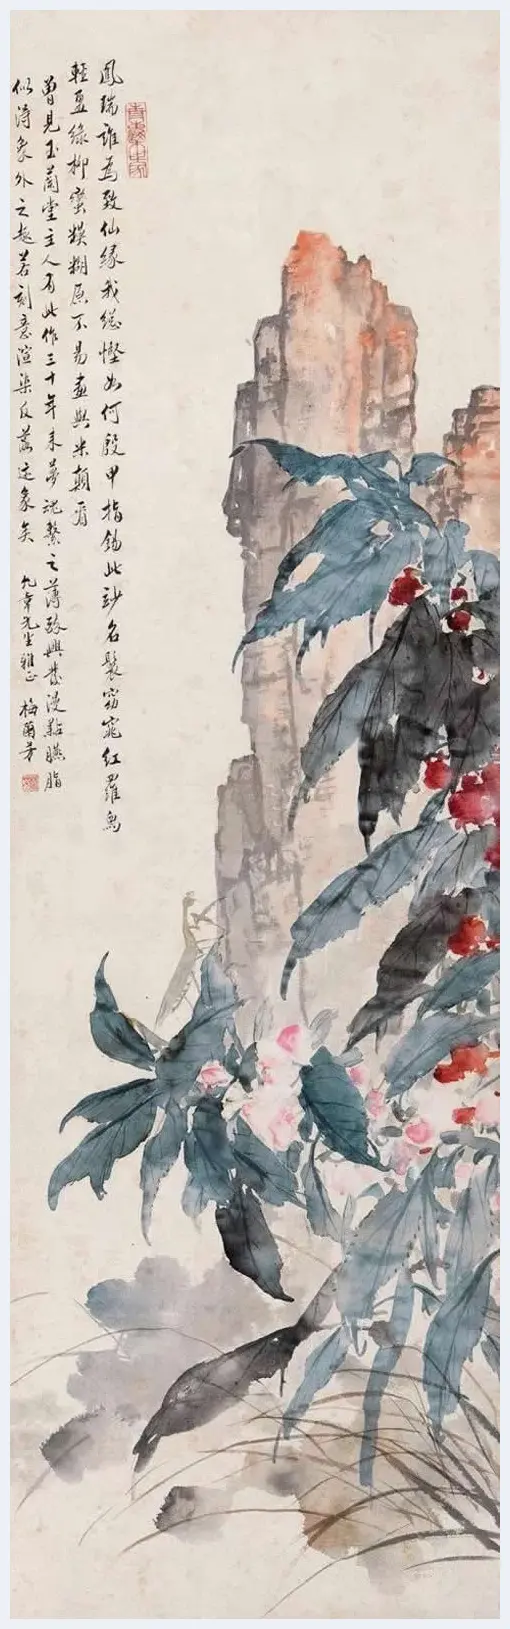 鳳瑞誰為致仙緣我總慳如何殷甲指錫此妙名鬟窈窕紅羅舞
輕盈綠柳蠻模糊原不易畫與米顛看
曾見玉蘭堂主人有此作三十年來夢魂縈之薄醉興發漫點臙脂
似得象外之趣若刻意渲染反落迹象矣
九章先生雅正 梅蘭芳